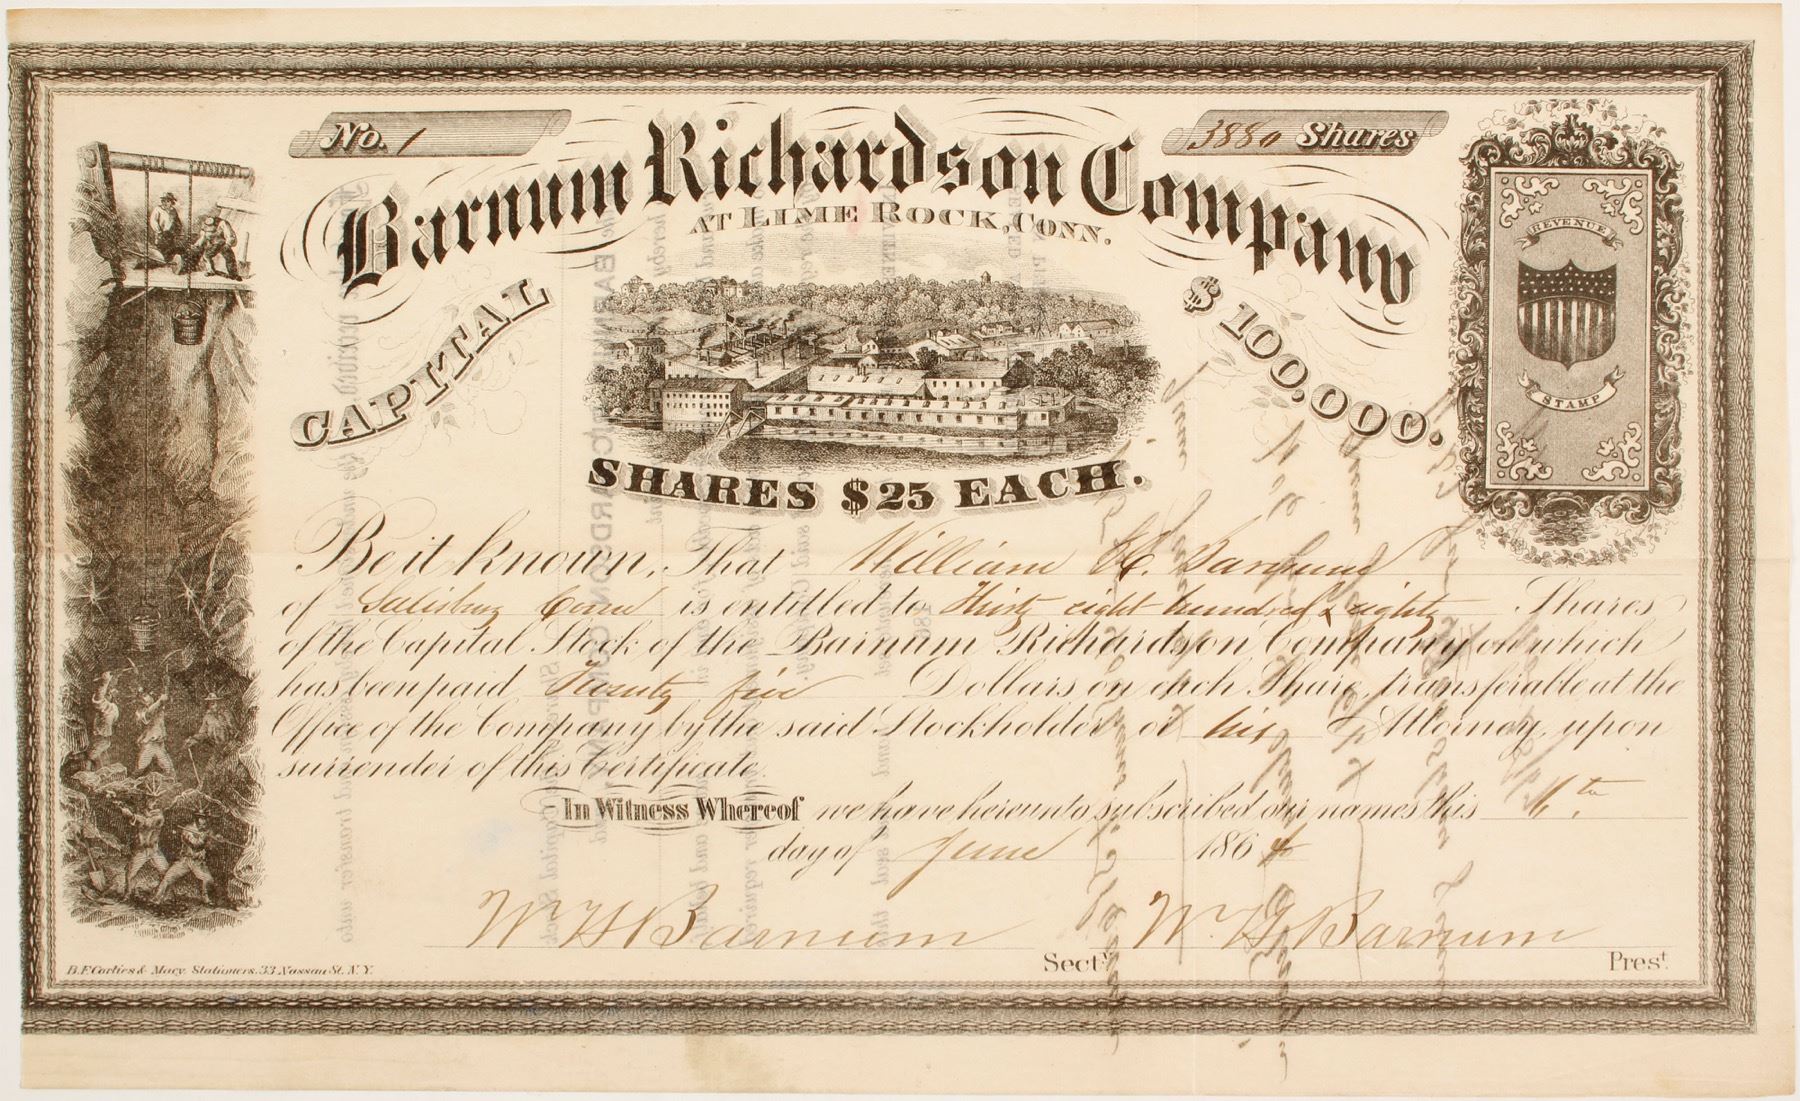 No. 1
3880 Shares
Barnum Richardson Company
AT LIME ROCK, CONN.
CAPITAL $100,000.
REVENUE
STAMP
SHARES $25 EACH.
Be it Known, That William H. Barnum
of Salisbury Conn is entitled to Thirty eight hundred & eighty Shares
of the Capital Stock of the Barnum Richardson Company on which
has been paid Twenty five Dollars on each Share, transferable at the
Office of the Company by the said Stockholder or his Attorney, upon
surrender of this Certificate.
In Witness Whereof we have hereunto subscribed our names this
day of June 1864
W H Barnum Sect.y W. H. Barnum Pres.t
B. F. Corlies & Macy, Stationers, 33 Nassau St. N.Y.